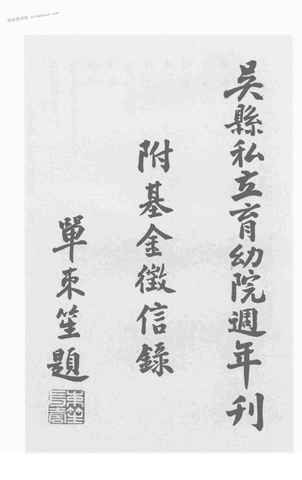 吳縣私立育幼院週年刊
附基金徵信錄
單束笙題